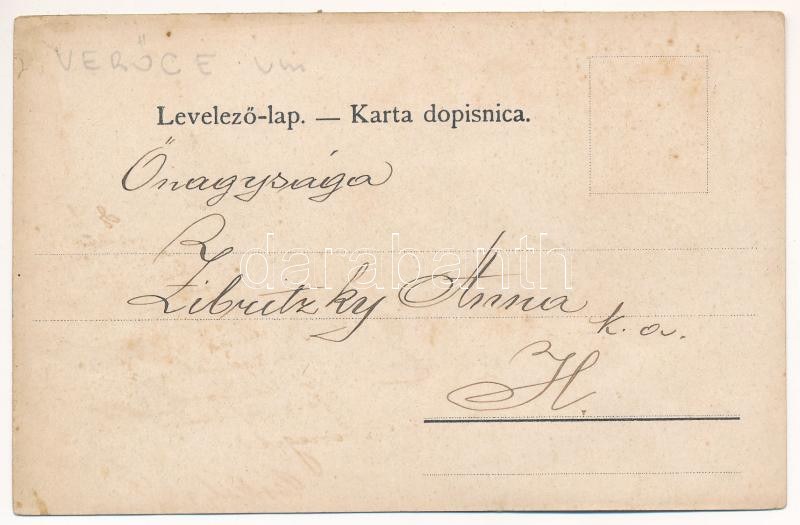 VERŐCE Vm
Levelező-lap. — Karta dopisnica.
Őnagysága
darabanth
Zibritzky Anna
k. a.
H.